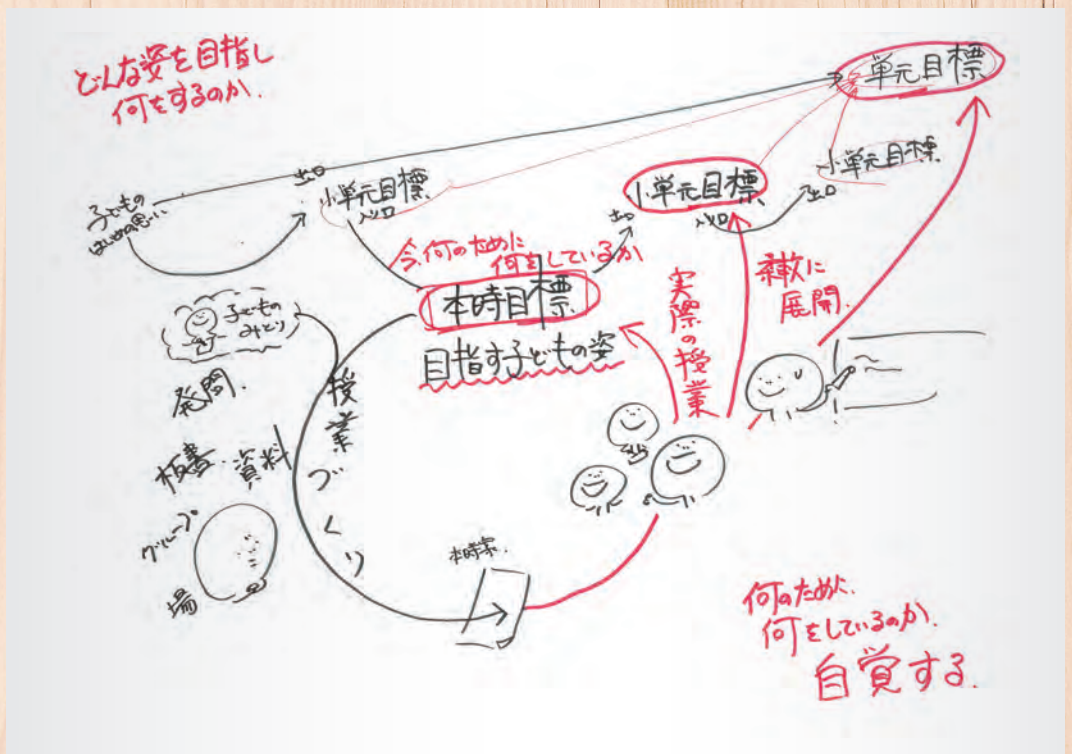 どんな姿を目指し
何をするのか.
単元目標
小単元目標
出口
小単元目標
入口
小単元目標
入口
出口
出口
子どもの
はじめの思い
今、何のために
何をしているか
本時目標
目指す子どもの姿
実際の授業
柔軟に
展開.
子どもの
みとり
発問.
板書.
資料
グループ
場
授業づくり
本時案.
何のために.
何をしているのか.
自覚する.